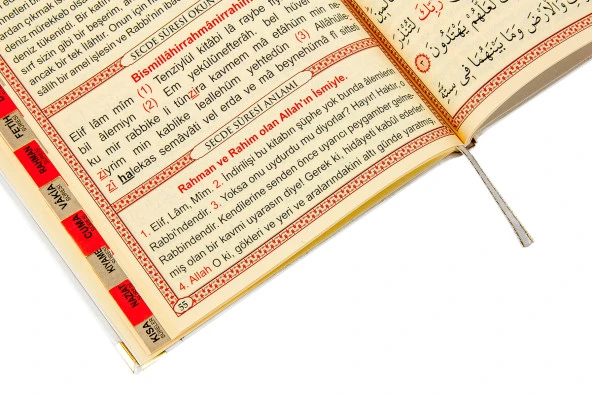 deniz mürekkep
deniz tükenirdi. Bir
sırf sizin gibi bir beşerim,
ancak bir tek ilâhtır. Onun için
salih bir amel işlesin ve Rabbi'nin
SECDE SÛRESİ OKUNUŞU
Bismillâhirrahmânirrahîm
Elif lâm mîm (1) Tenzîylül kitâbi lâ raybe fîyhi
bil âlemiyn (2) Em yekûlünefterâh, bel hüvel
ku mir rabbike li tünzira kavmem mâ etâhüm min ne
ziyrim min kablike leallehüm yehtedûn (3) Allâhülle
zî halekas semâvâti vel erda ve mâ beynehümâ fî sitteti
SECDE SÛRESİ ANLAMI
Rahman ve Rahim olan Allah'ın İsmiyle.
1. Elif, Lâm, Mîm, 2. İndirilişi bu kitabın şüphe yok bunda âlemlerin
Rabbi'ndendir. 3. Yoksa onu uydurdu mu diyorlar? Hayır! Haktır, o
Rabbindendir. Kendilerine senden önce uyarıcı peygamber gelme-
miş olan bir kavmi uyarasın diye! Gerek ki, hidâyeti kabul ederler!
4. Allah O ki, gökleri ve yeri ve aralarındakini altı günde yaratmış,
55
FETİH
RAHMAN
VAKIA
CUMA
KIYAME
NAZİAT
KISA
SURELER
رَبِّكَ
لَعَلَّهُمْ يَهْتَدُونَ
وَالْاَرْضَ وَمَا بَيْنَهُمَا فٖى سِتَّةِ